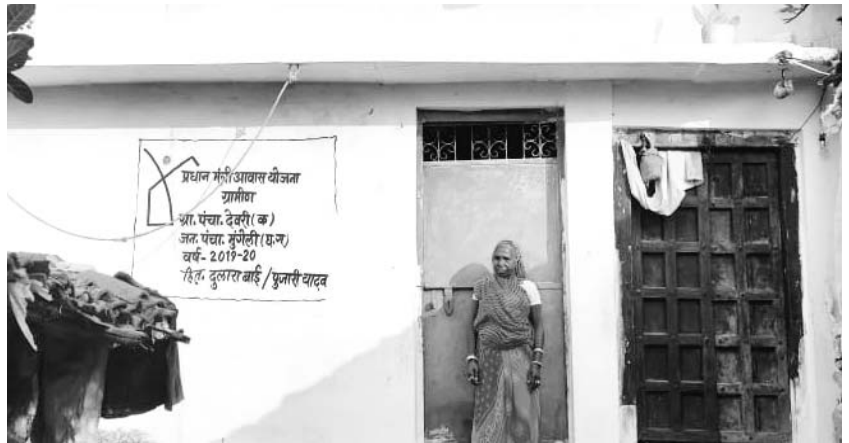 प्रधान मंत्री आवास योजना
ग्रामीण
ग्रा. पंचा. देवरी (क)
जन. पंचा. मुंगेली (छ.ग)
वर्ष - 2019-20
हित. दुलारा बाई / पुजारी यादव